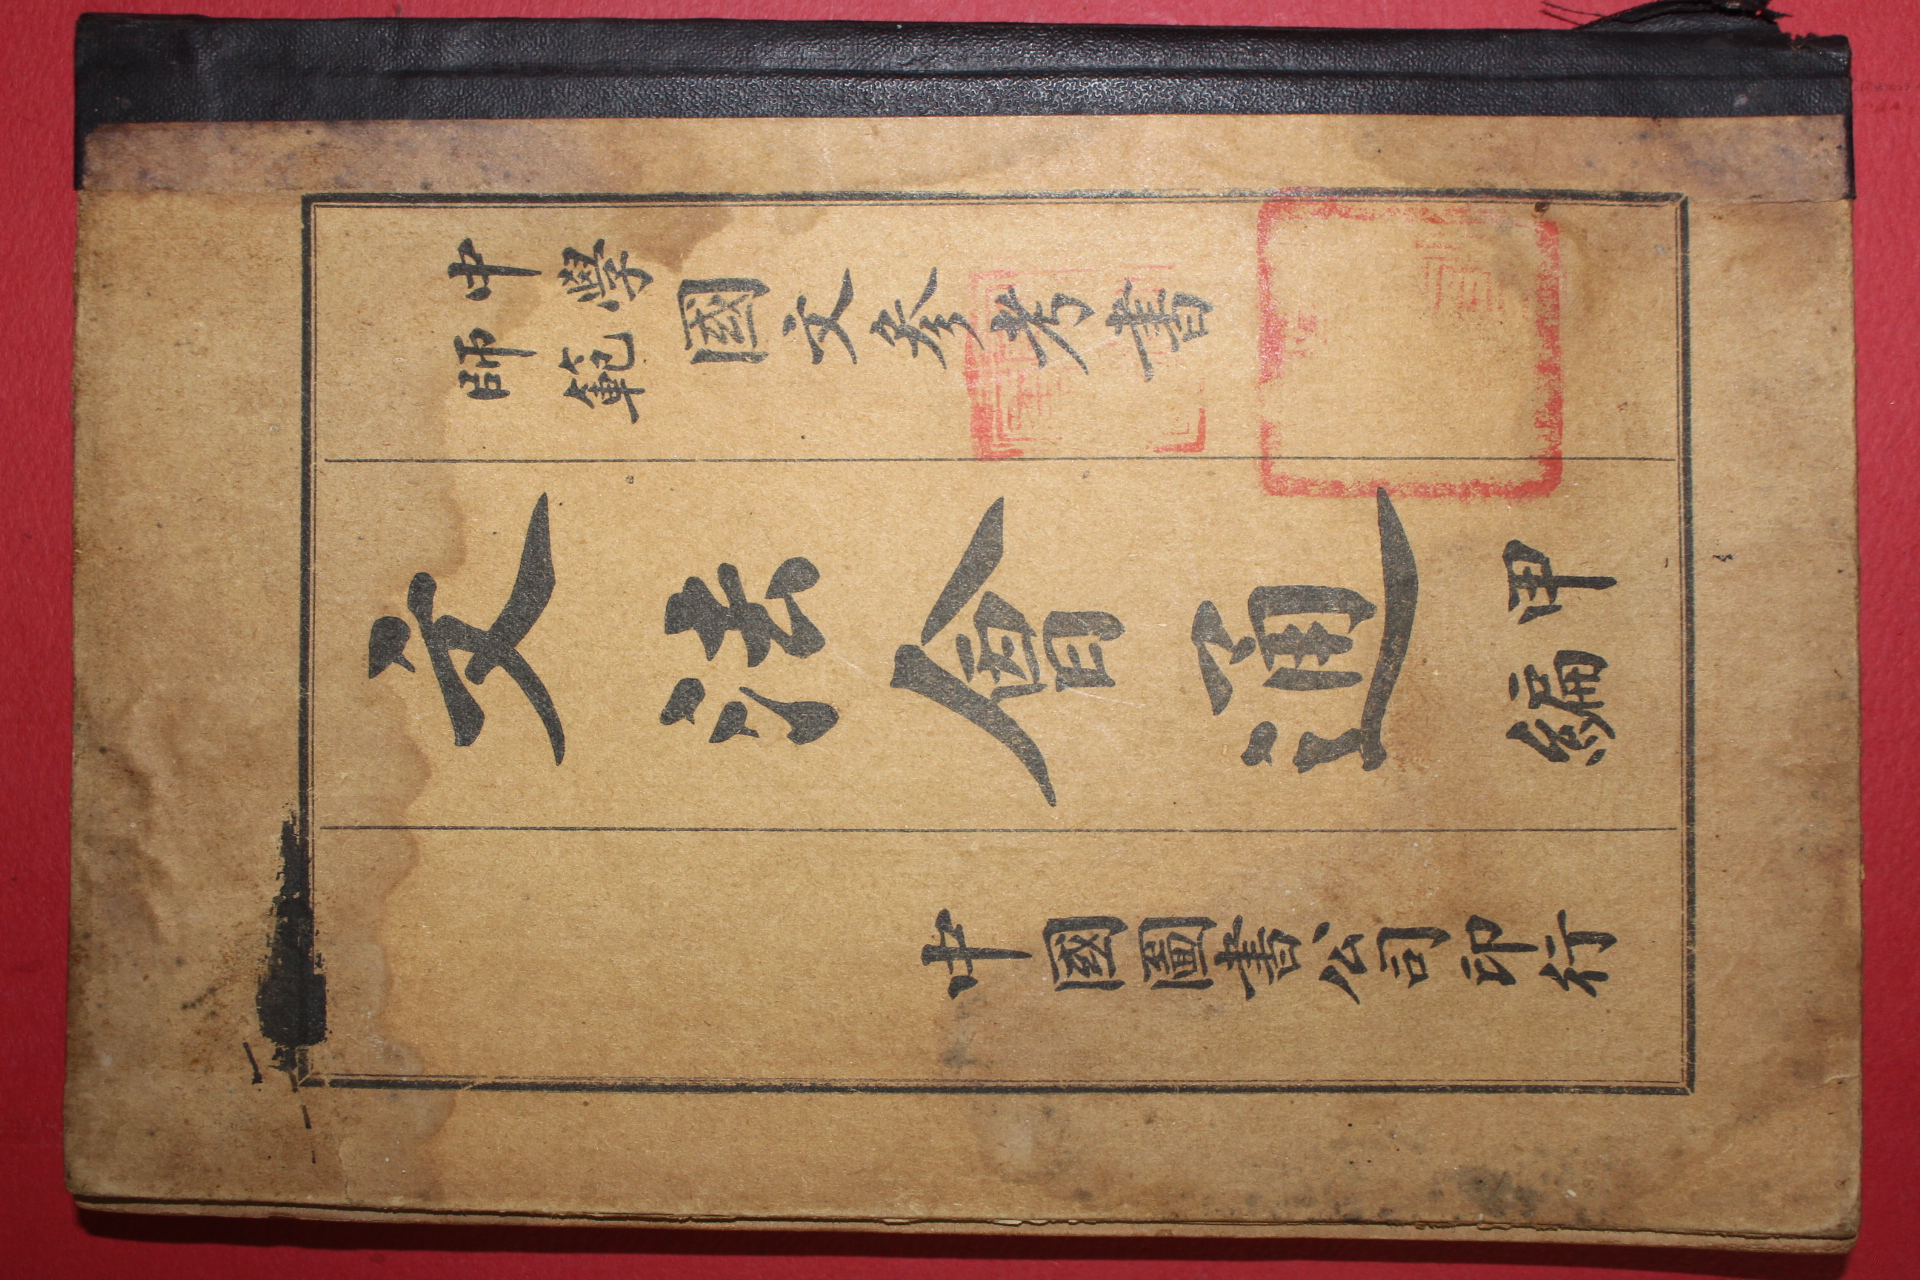 中學
師範
國文參考書
文法會通
甲
編
中國圖書公司印行